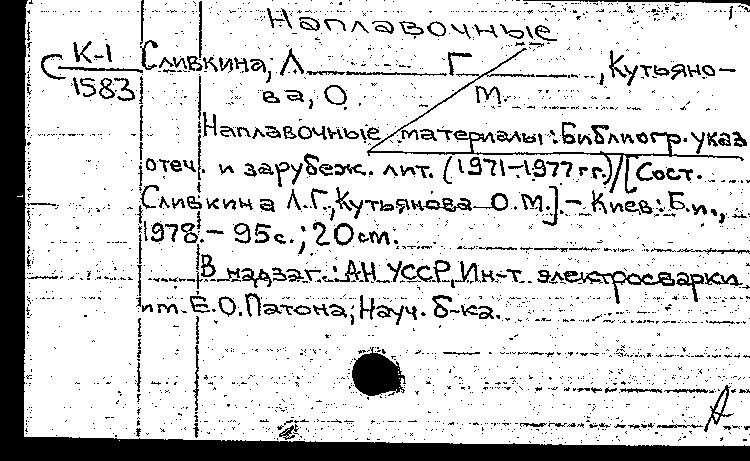 Наплавочные
С К-1 Сливкина, Л Г , Кутьяно-
1583 ва, О М.
Наплавочные материалы: Библиогр. указ
отеч. и зарубеж. лит. (1971-1977 гг.)/[Сост.
Сливкина Л.Г., Кутьянова О.М.]. - Киев: Б.и.,
1978. - 95с.; 20см.
В надзаг.: АН УССР, Ин-т электросварки
им. Е.О. Патона, Науч. б-ка.